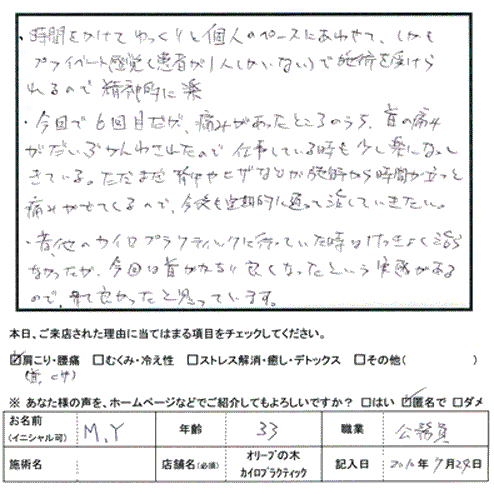 ・時間をかけてゆっくりと個人のペースにあわせて、しかも
プライベート感覚(患者が1人しかいない)で施術を受けら
れるので精神的に楽
・今回で6回目だが、痛みがあったところのうち、首の痛み
がだいぶかんわされたので仕事している時も少し楽になっ
きている。ただまだ背中やヒザなどが施術から時間が立つと
痛みがでてくるので、今後も定期的に通って治していきたい。
・昔、他のカイロプラクティックに行っていた時はけっきょく治ら
なかったが、今回は首がかなり良くなったという実感がある
ので、来て良かったと思っています。
本日、ご来店された理由に当てはまる項目をチェックしてください。
☑肩こり・腰痛 □むくみ・冷え性 □ストレス解消・癒し・デトックス □その他( )
(首、ヒザ)
※ あなた様の声を、ホームページなどでご紹介してもよろしいですか? □はい ☑匿名で □ダメ
お名前 (イニシャル可) M.Y 年齢 33 職業 公務員
施術名 店舗名(必須) オリーブの木 カイロプラクティック 記入日 2010年 7月29日